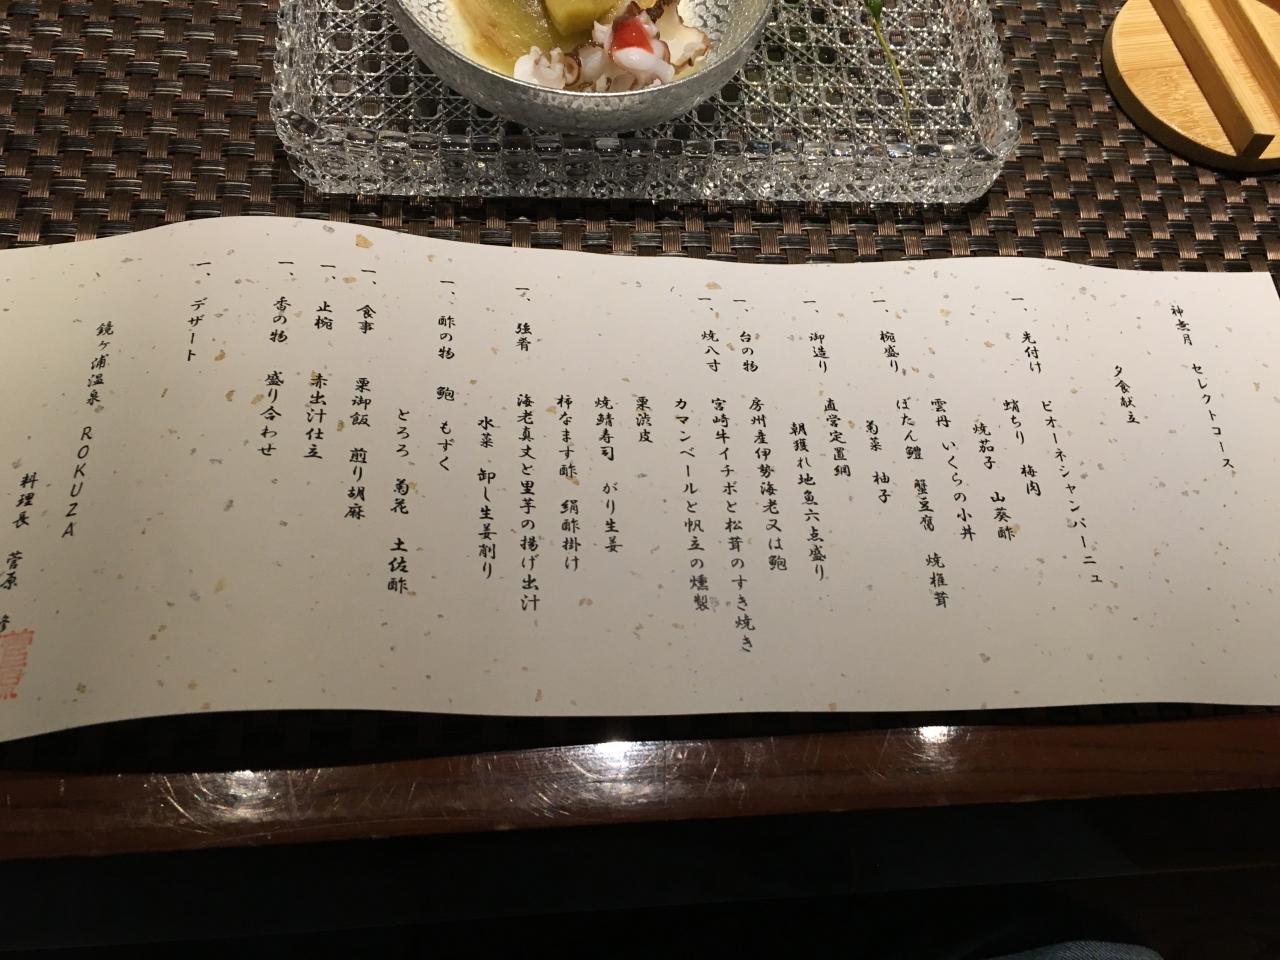 神無月　セレクトコース
夕食献立
ピオーネシャンパーニュ
一、先付け　蛸ちり　梅肉
焼茄子　山葵酢
雲丹　いくらの小丼
一、椀盛り　ぼたん鱧　蟹豆腐　焼椎茸
菊菜　柚子
一、御造り　直営定置網
朝獲れ地魚六点盛り
一、台の物　房州産伊勢海老又は鮑
宮崎牛イチボと松茸のすき焼き
一、焼八寸　カマンベールと帆立の燻製
栗渋皮
焼鯖寿司　がり生姜
柿なます酢　絹酢掛け
一、強肴　海老真丈と里芋の揚げ出汁
水菜　卸し生姜削り
一、酢の物　鮑　もずく
とろろ　菊花　土佐酢
一、食事　栗御飯　煎り胡麻
一、止椀　赤出汁仕立
一、香の物　盛り合わせ
一、デザート
鏡ヶ浦温泉　ROKUZA
料理長　菅原